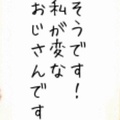 そうです！
私が変な
おじさんです